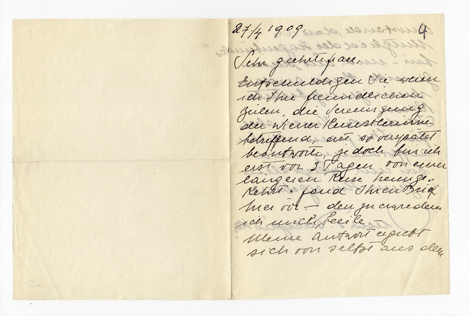 27/4 1909
4
Sehr geehrte Frau,
Entschuldigen Sie wenn
ich Ihre freundlichen
Zeilen, die Vereinigung
der Wiener Künstlerinnen
betreffend, erst so verspätet
beantworte, jedoch bin ich
erst vor 3 Tagen von einer
längeren Reise heimge-
kehrt – fand Ihren Brief
hier vor – den zu erwidern
ich mich beeile.
Meine Antwort ergiebt
sich von selbst aus dem